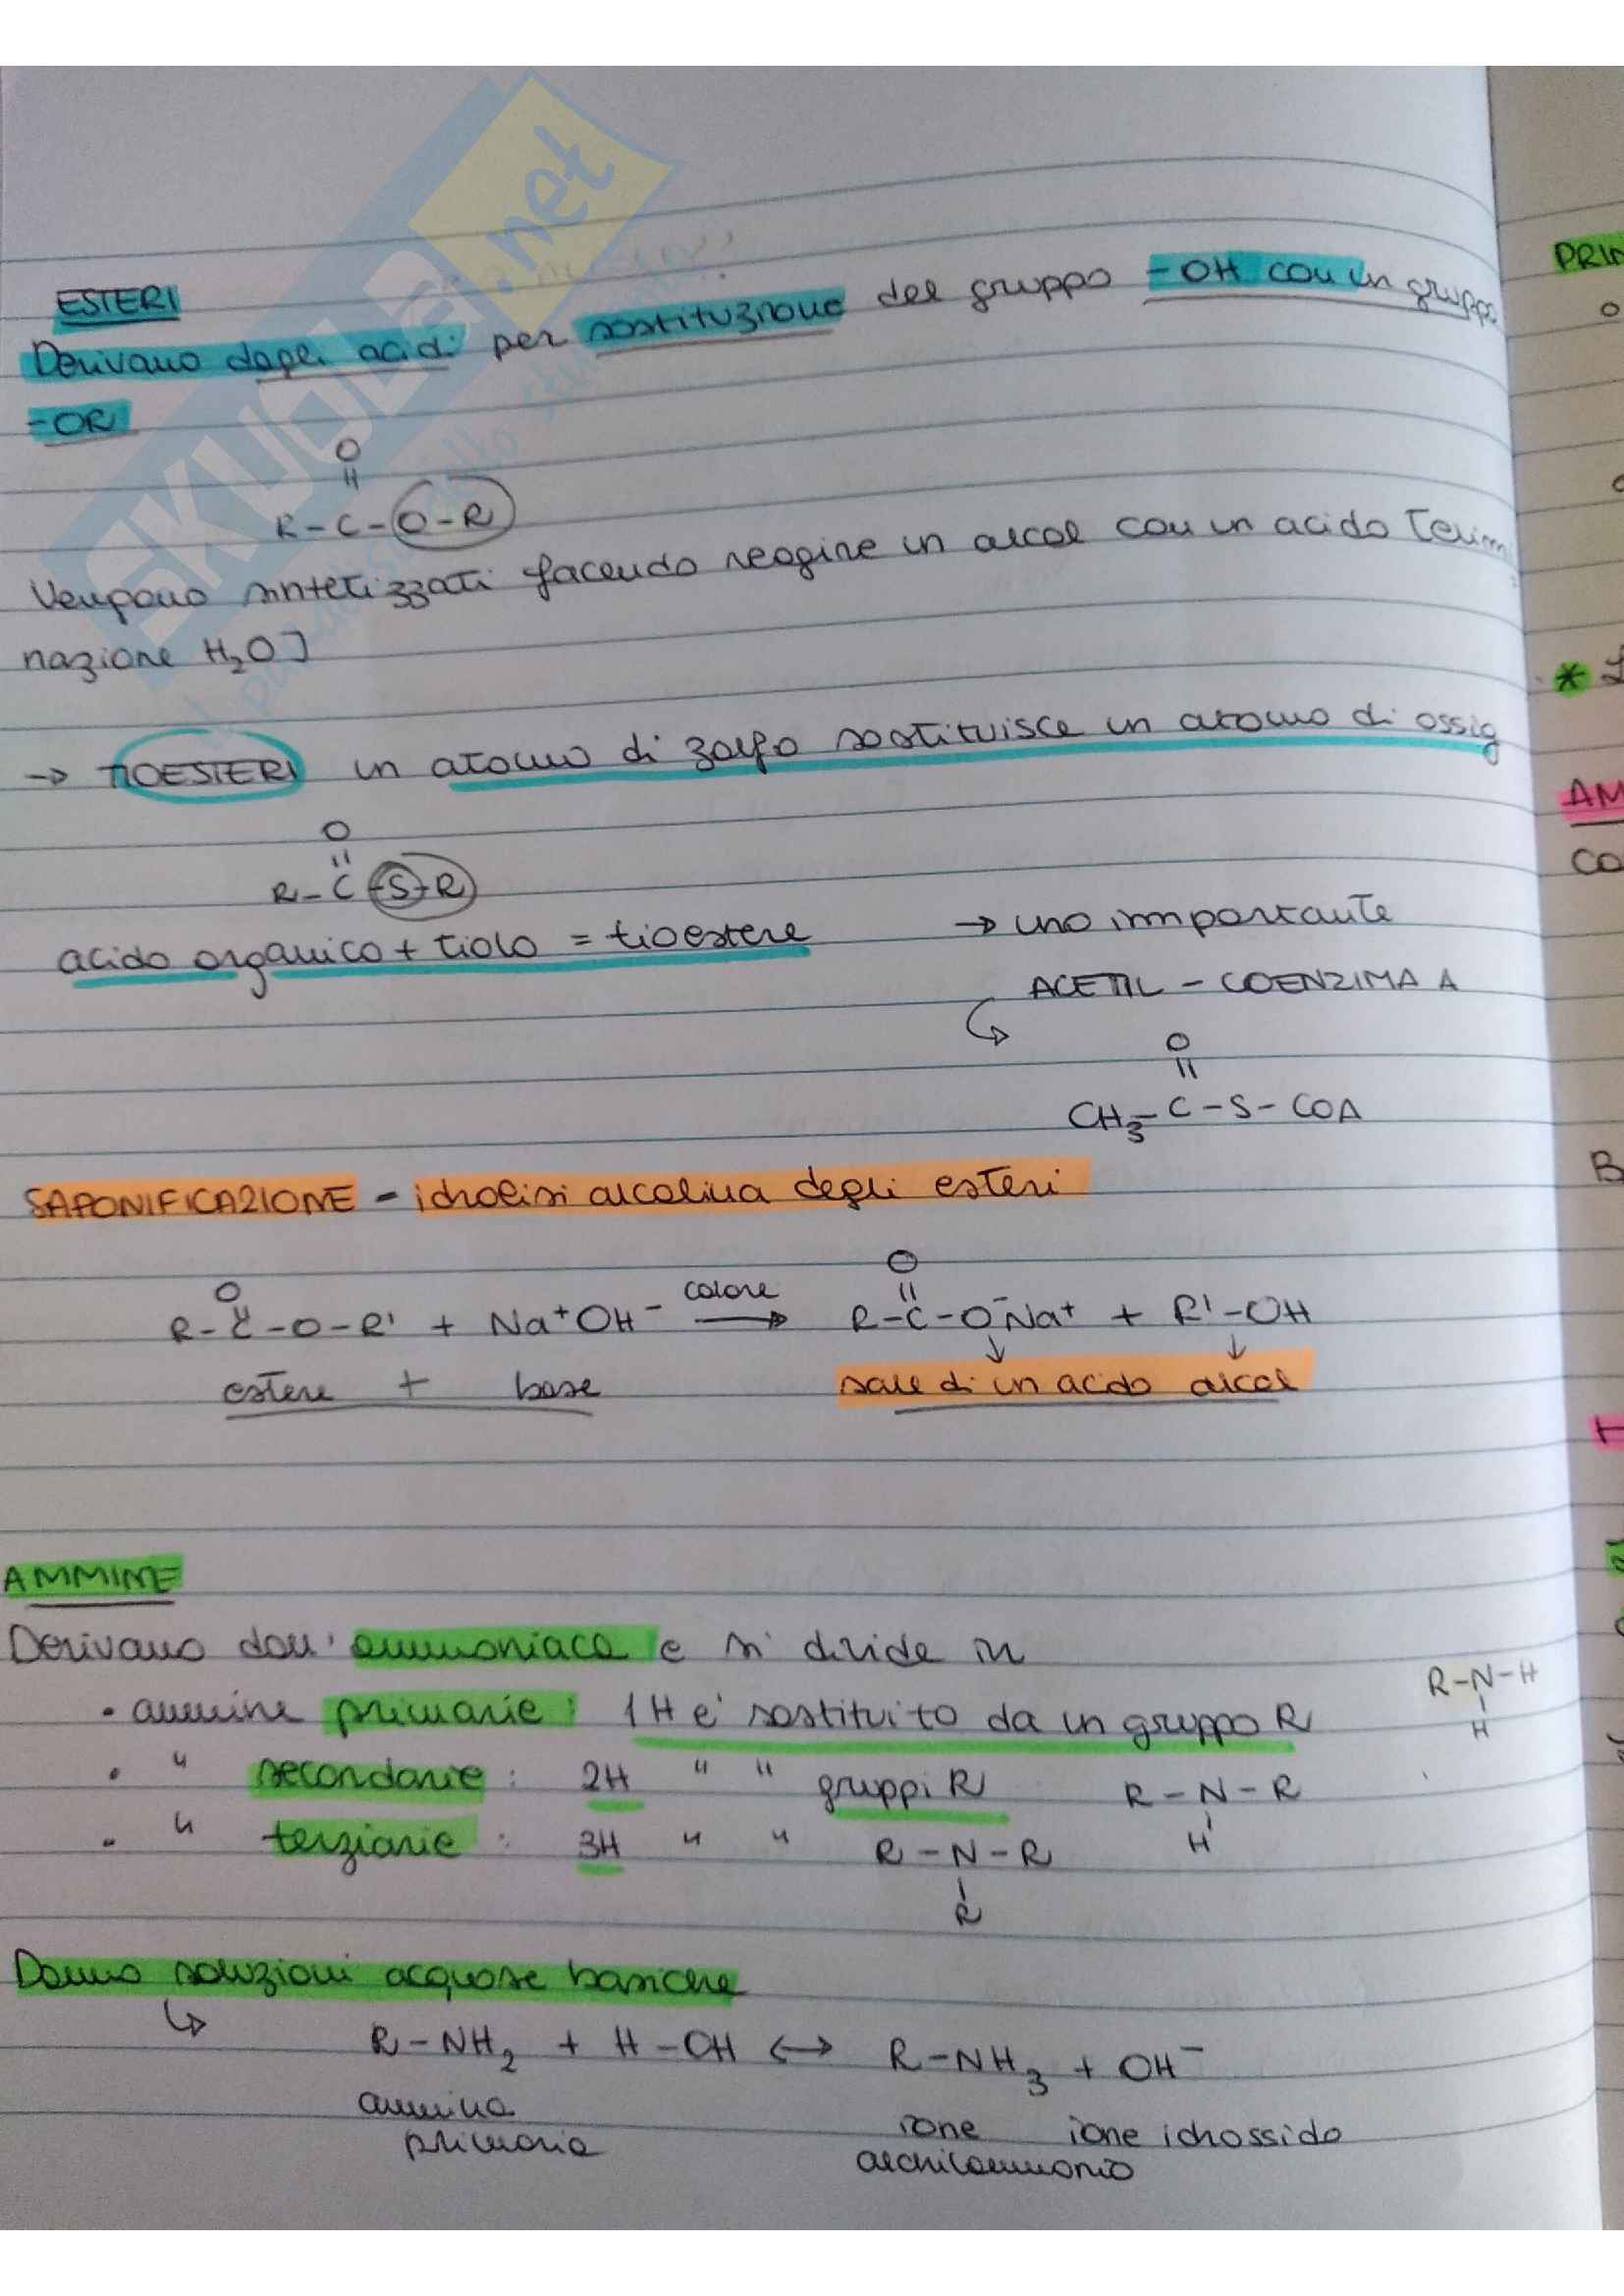 ESTERI
Derivano dagli acidi per sostituzione del gruppo -OH con un gruppo
-OR
O
R-C-O-R
Vengono sintetizzati facendo reagire un alcol con un acido [elimi
nazione H₂O]
→ TIOESTERI un atomo di zolfo sostituisce un atomo di ossig
O
R-C-S-R
acido organico + tiolo = tioestere → uno importante
ACETIL - COENZIMA A
O
CH₃-C-S-COA
SAPONIFICAZIONE - idrolisi alcalina degli esteri
R-C-O-R' + Na⁺OH⁻ calore → R-C-O⁻Na⁺ + R'-OH
estere + base sale di un acido alcol
AMMINE
Derivano dall'ammoniaca e si divide in
• ammine primarie: 1H è sostituito da un gruppo R R-N-H
H
• " secondarie: 2H " " gruppi R R-N-R
H
• " terziarie: 3H " " R-N-R
R
Danno soluzioni acquose basiche
R-NH₂ + H-OH ↔ R-NH₃ + OH⁻
ammina primaria ione alchilammonio ione idrossido
PRIN
AM
CO
B
SKUOLA.net